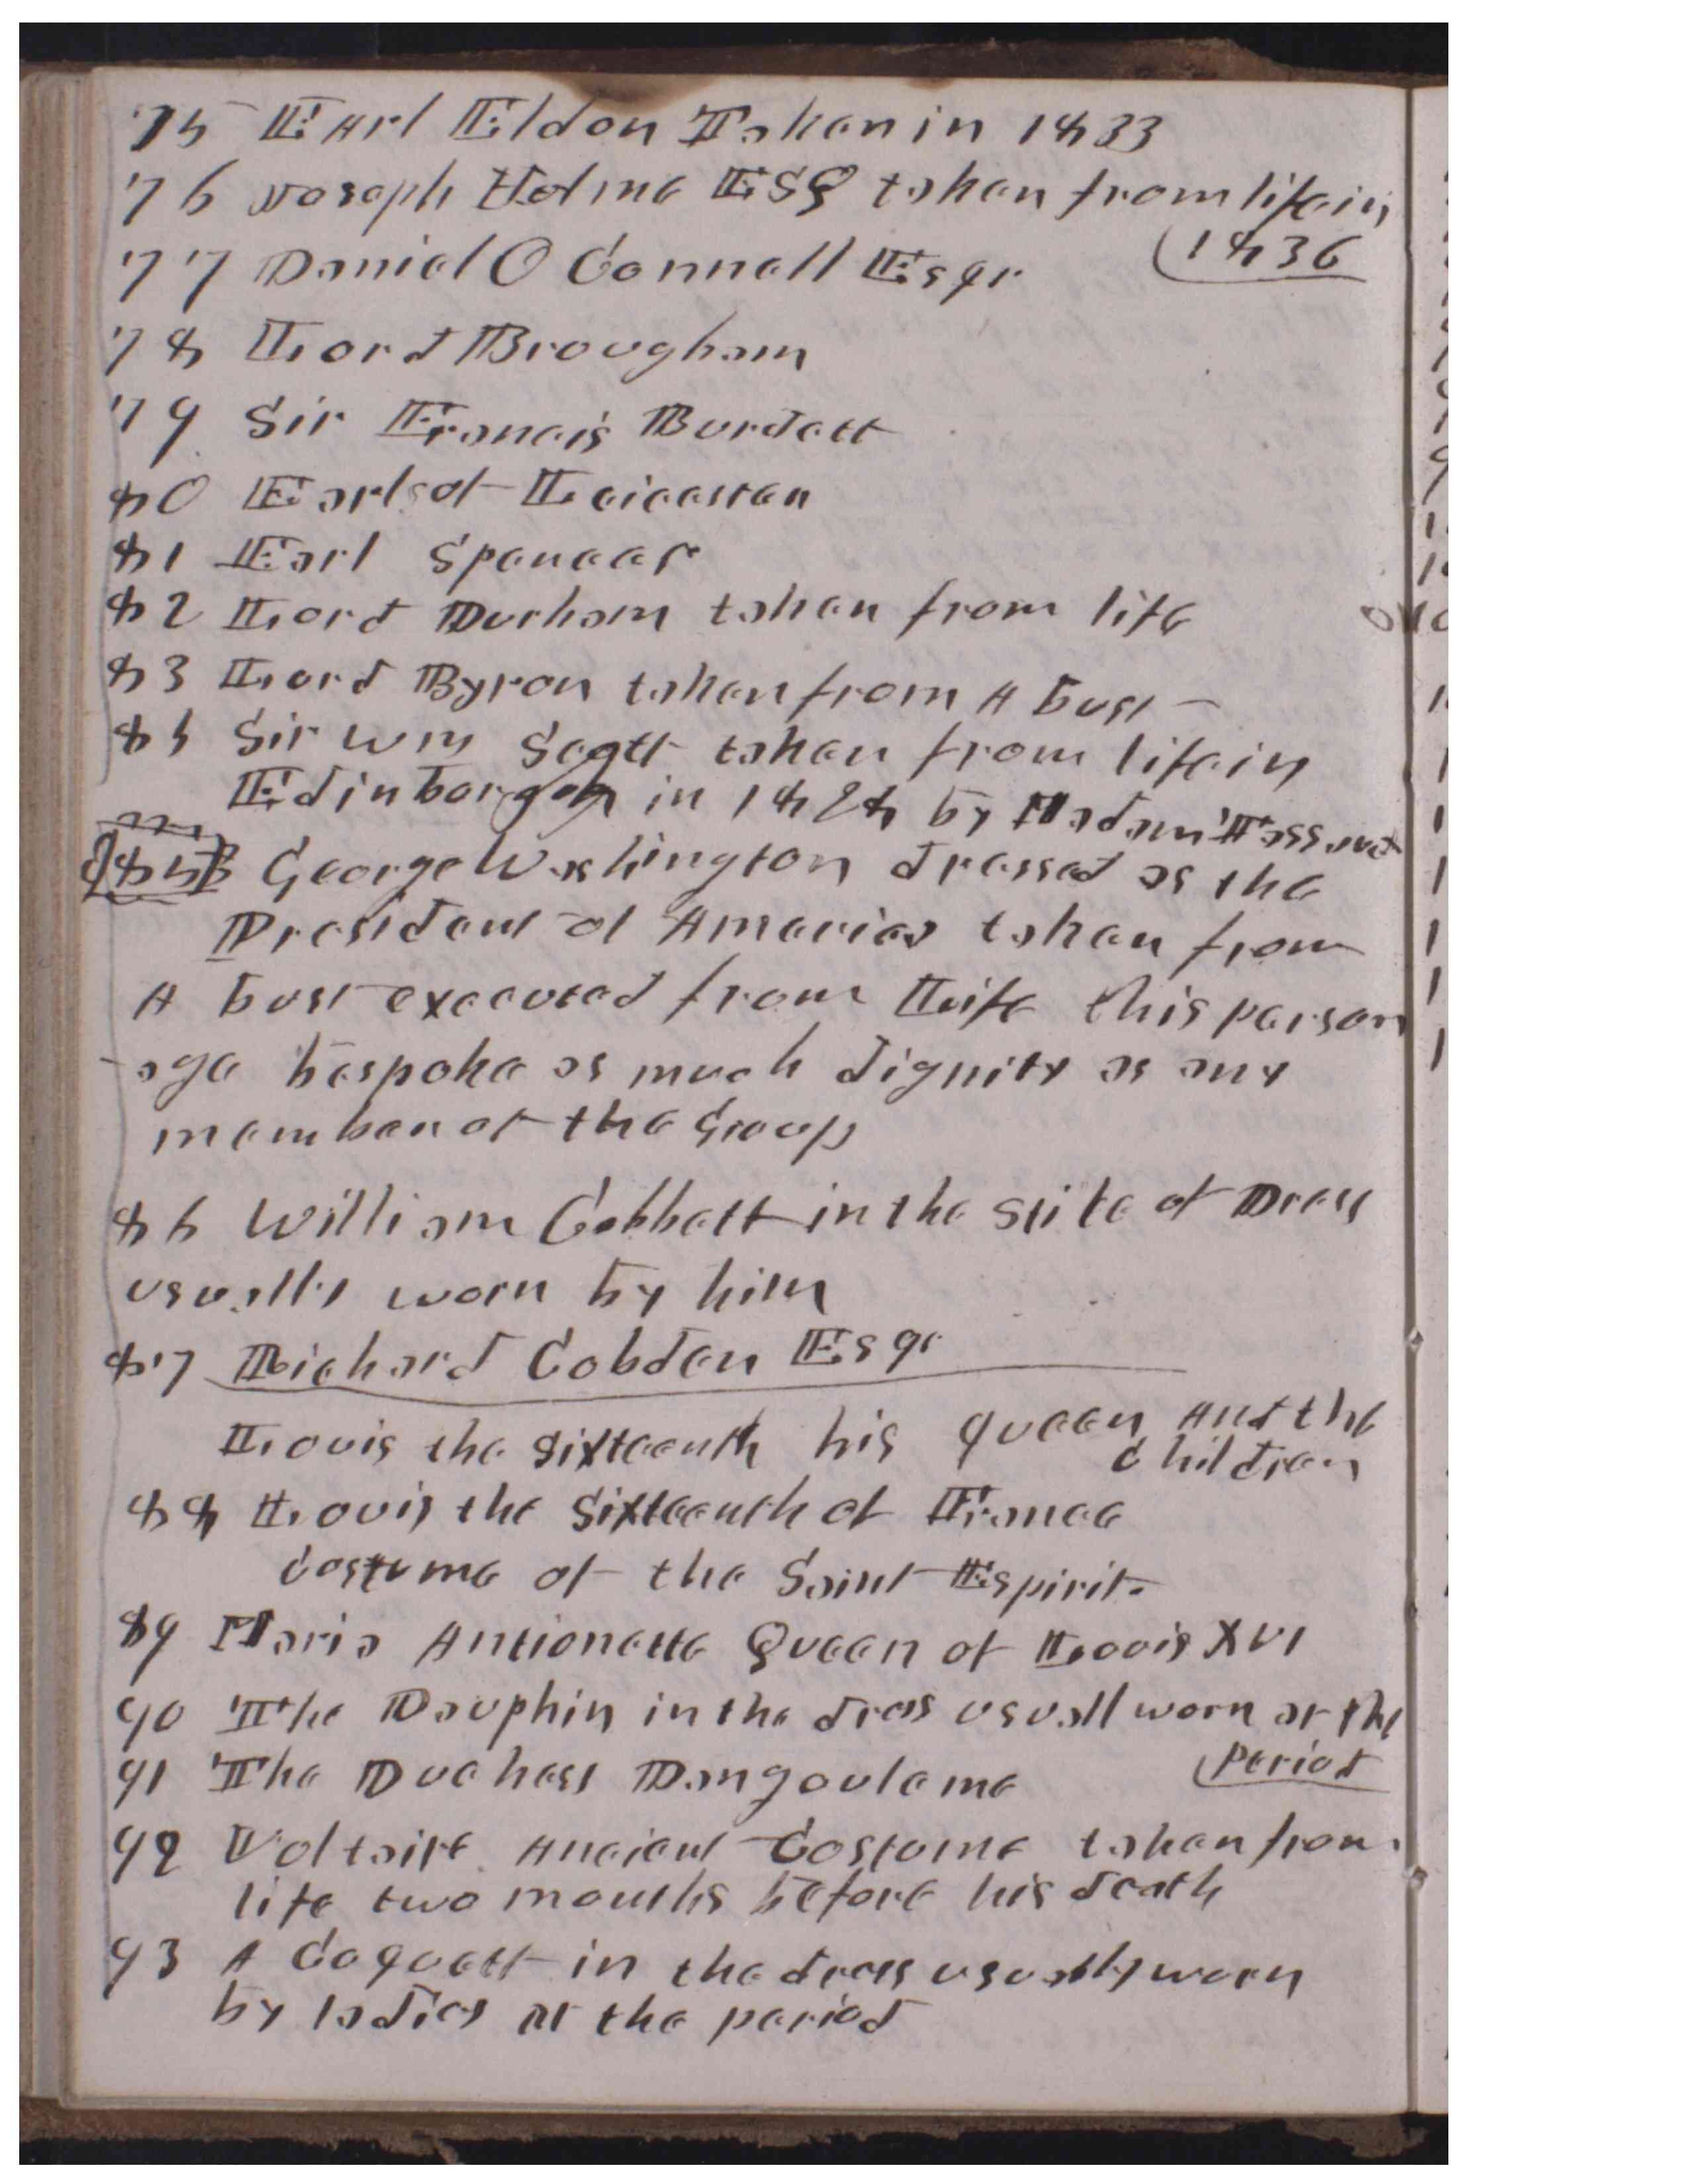 75 Earl Eldon Taken in 1833
76 Joseph Holme ESQ taken from life in
(1836
77 Daniel O Connell Esqr
78 Lord Brougham
79 Sir Francis Burdett
80 Earl of Leicester
81 Earl Spencer
82 Lord Durham taken from life
83 Lord Byron taken from A bust -
84 Sir Wm Scott taken from life in
Edinborgoh in 1828 by Madam Tassaud
85 George Washington dressed as the
President of America taken from
A bust executed from Life this person
-age bespoke as much dignity as any
member of the Group
86 William Cobbett in the stile of Dress
usually worn by him
87 Richard Cobden Esqr
Louis the sixteenth his queen And the
Children
88 Louis the Sixteenth of France
Costume of the Saint Espirit.
89 Maria Antionette Queen of Louis XVI
90 The Dauphin in the dress usuall worn at the
(period
91 The Duchess Dangouleme
92 Voltaire Ancient Costume taken from
life two months before his death
93 A Coquett in the dress usually worn
by ladies at the period